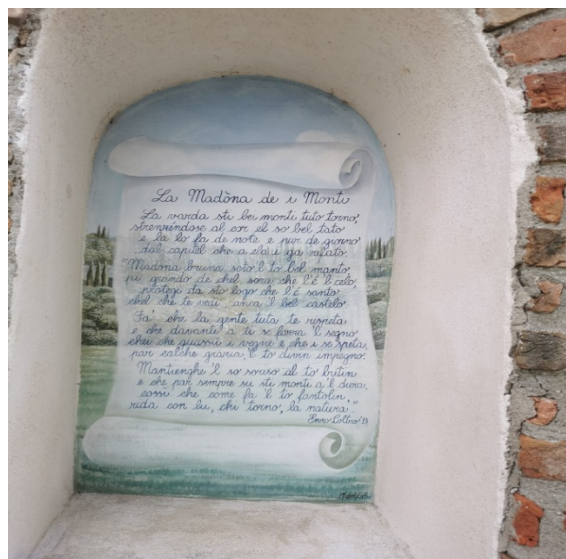 La Madòna de i Monti
La varda sti bei monti tuto torno,
strenzendose al cor el so bel tato
e la lo fa de note e pur de giorno
dal capitel che a ela i ga refato.
"Madona bruna, soto 'l to bel manto,
pi grando de chel sora che l'è 'l celo,
protegi da sto logo che l'è santo
chel che te vedi, anca 'l bel castelo.
Fa' che la gente tuta te rispeta
e che davante a ti se fazza 'l segno,
chei che quassù i vegne e che i se speta,
par calche grazia, 'l to divin impegno.
Mantienghe 'l so soriso al to butin
e che par sempre su sti monti a 'l dura,
cossì che come fa 'l to fantolin,
rida con lu, chi torno, la natura."